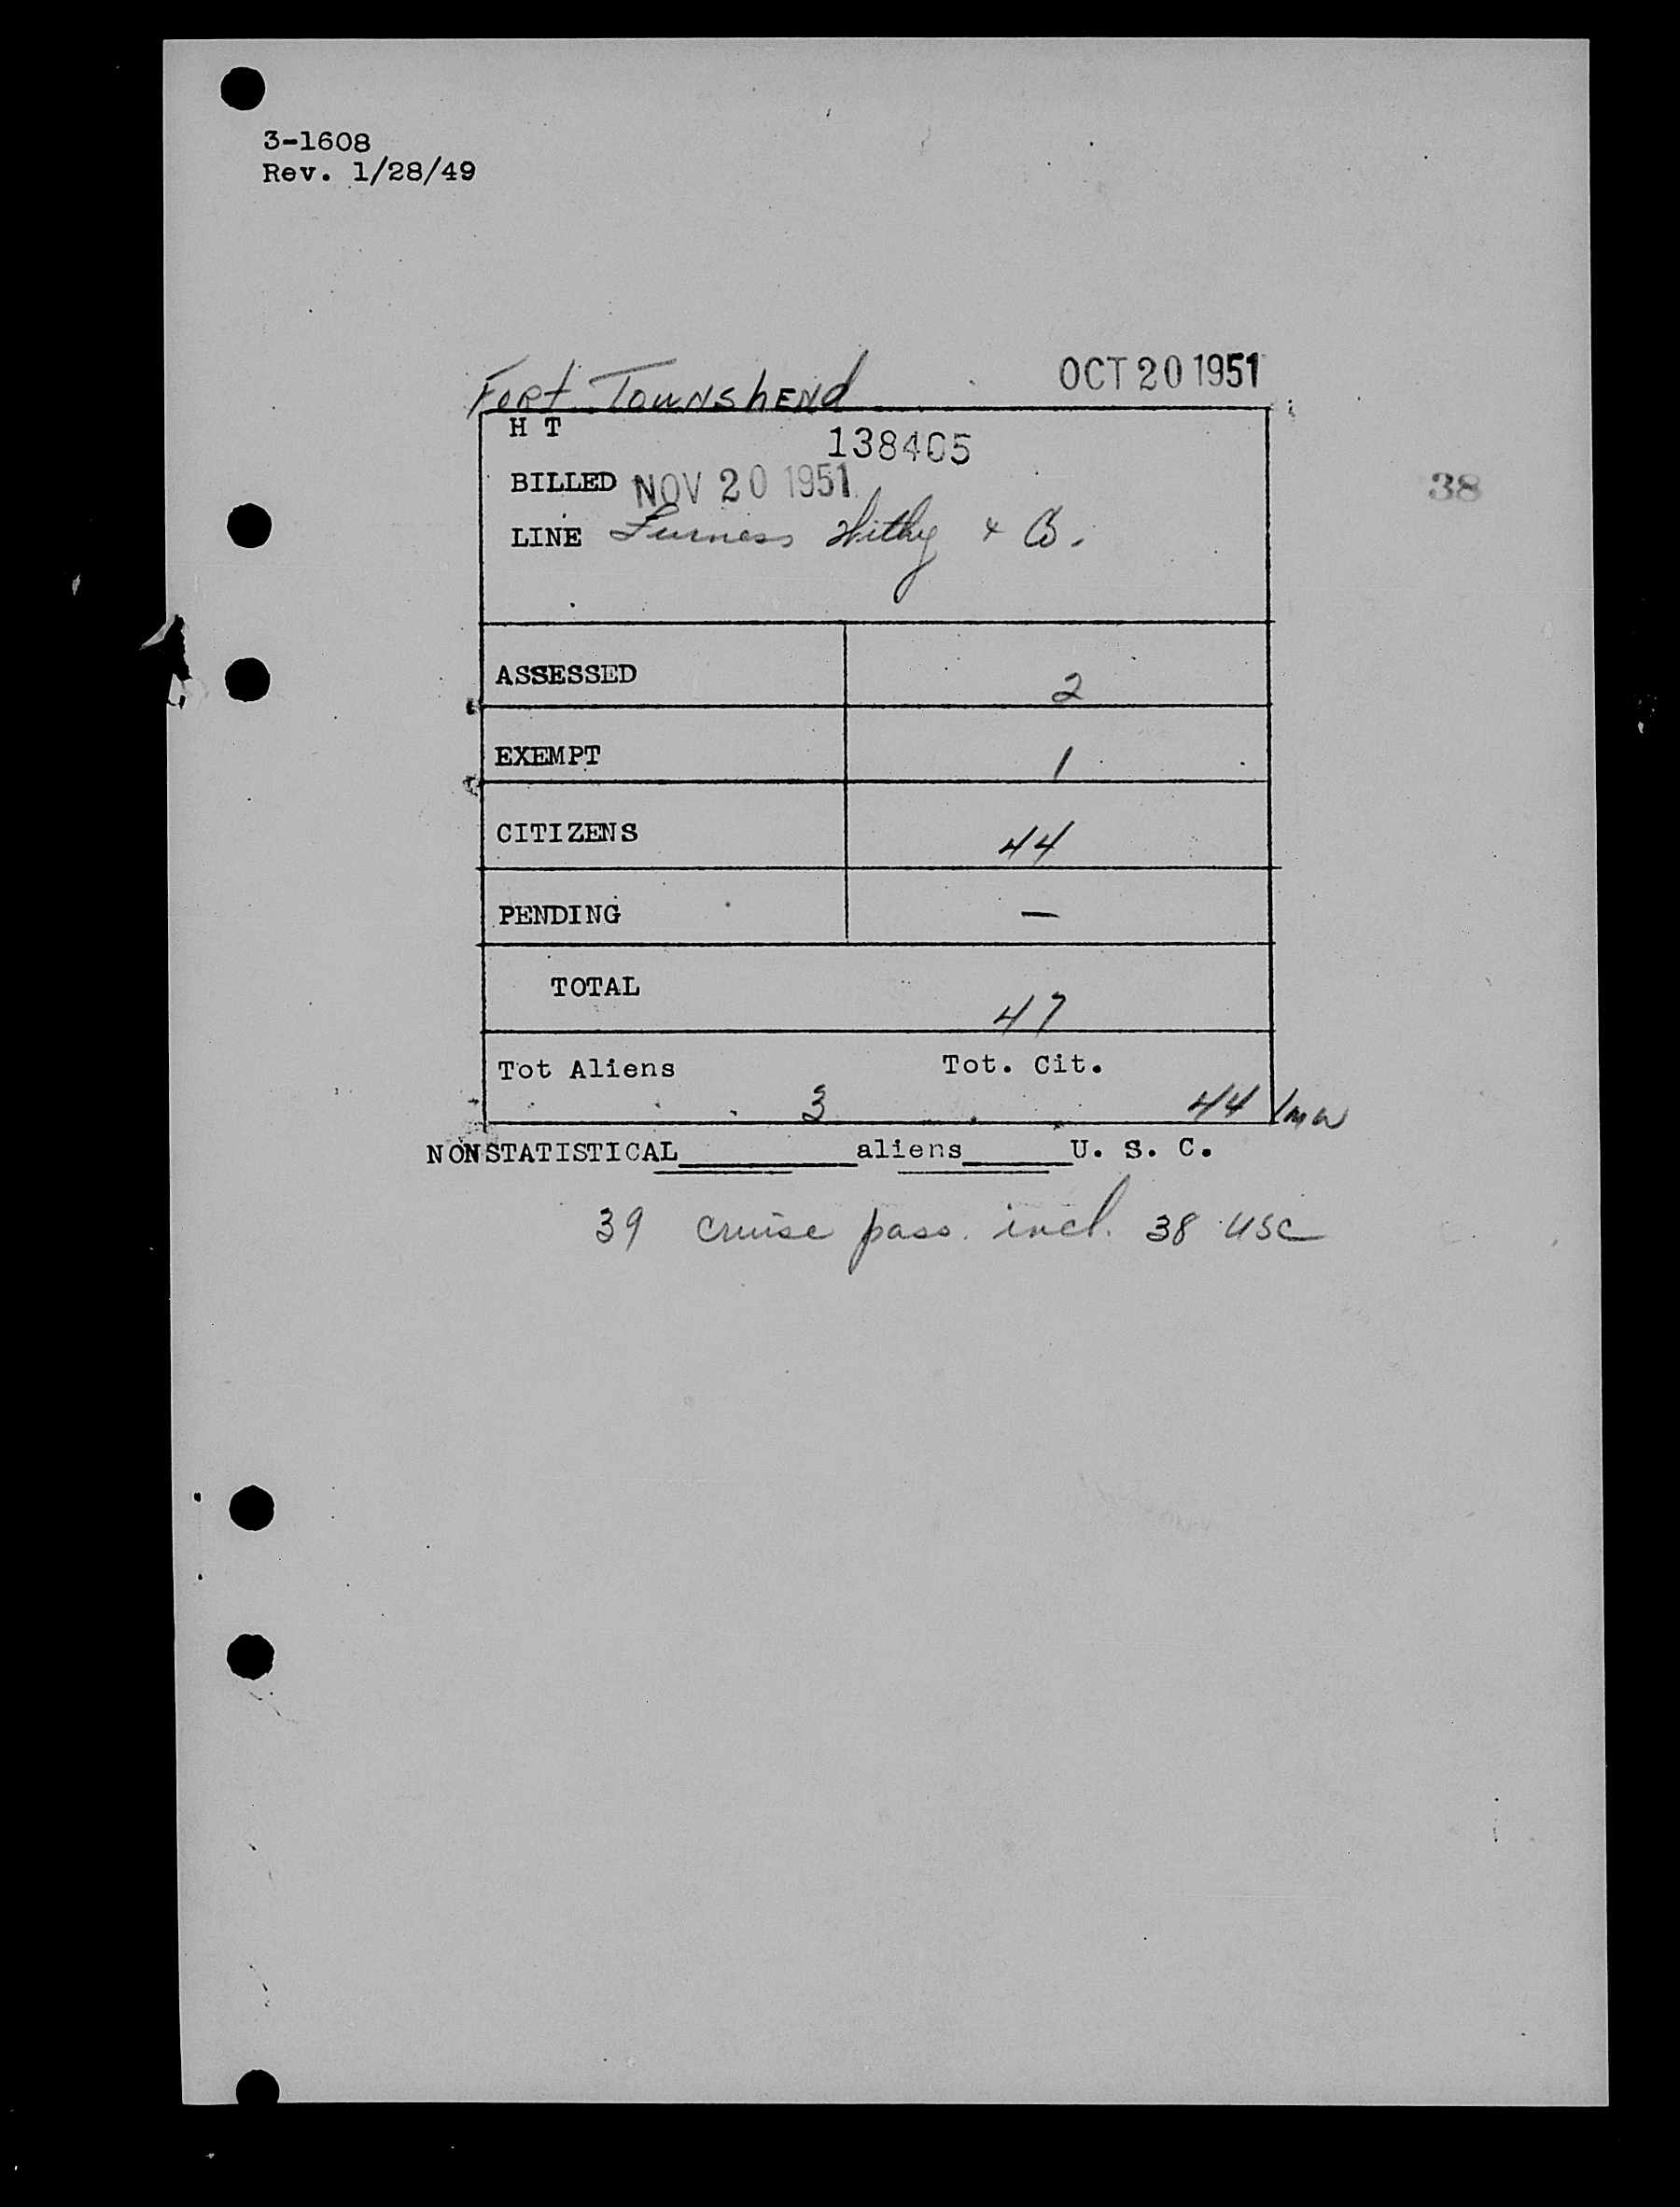 3-1608
Rev. 1/28/49
Fort Townshend OCT 20 1951
H T 138405
BILLED NOV 20 1951
38
LINE Furness Withy & Co.
ASSESSED 2
EXEMPT 1
CITIZENS 44
PENDING —
TOTAL 47
Tot Aliens 3 Tot. Cit. 44 /mw
NONSTATISTICAL__________aliens______U. S. C.
39 cruise pass. incl. 38 USC